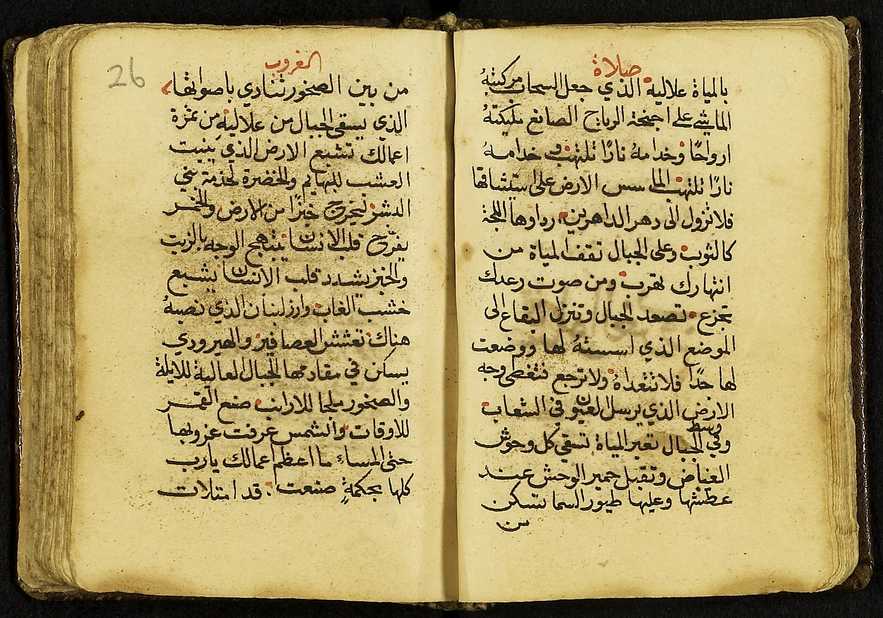 صلاة
بالمياة علاليه الذي جعل السحاب مركبتهُ
الماشي على اجنحة الرياح الصانع مليكتهُ
ارواحًا وخدامهُ نارًا تلتهب وخدامهُ
نارًا تلتهب المسس الارض على استيثاقها
فلا تزول الى دهر الداهرين رداوها اللجة
كالثوب وعلى الجبال تقف المياة من
انتهارك تهرب ومن صوت رعدك
تجزع تصعد الجبال وتنزل البقاع الى
الموضع الذي اسستهُ لها ووضعت
لها حدًا فلا تتعداهُ ولا ترجع تتغطى وجه
الارض الذي يرسل العيون في الشعاب
وفي وسط الجبال تعبر المياة تسقي كل وحوش
الغياض وتقبل حمير الوحش عند
عطشها وعليها طيور السما تسكن
من
الغروب
26
من بين الصخور تنادي باصواتها
الذي يسقي الجبال من علاليه من ثمرة
اعمالك تشبع الارض الذي ينبت
العشب للبهايم والخضرة لخدمة بني
البشر ليخرج خبزًا من الارض والخمر
يفرح قلب الانسان يبتهج الوجه بالزيت
والخبز يشدد قلب الانسان يشبع
خشب الغاب وارز لبنان الذي نصبهُ
هناك تعشش العصافير والهيرودي
يسكن في مقادمها الجبال العالية للايلة
والصخور ملجا للارانب صنع القمر
للاوقات والشمس عرفت غروبها
حتى المساء ما اعظم اعمالك يارب
كلها بحكمةٍ صنعت قد امتلات